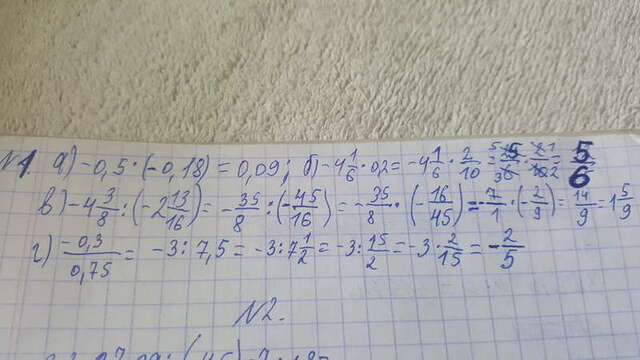 №1. а) -0,5·(-0,18) = 0,09; б) -4 1/6 · 0,2 = -4 1/6 · 2/10 = = 5/6
в) -4 3/8 : (-2 13/16) = -35/8 : (-45/16) = -35/8 · (-16/45) = -7/1 · (-2/9) = 14/9 = 1 5/9
г) -0,3/0,75 = -3 : 7,5 = -3 : 7 1/2 = -3 : 15/2 = -3 · 2/15 = -2/5
№2.